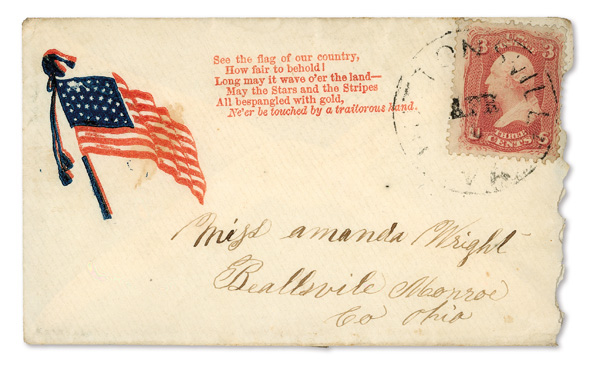 See the flag of our country,
How fair to behold!
Long may it wave o'er the land—
May the Stars and the Stripes
All bespangled with gold,
Ne'er be touched by a traitorous hand.
3 3
THREE
CENTS
APR
Miss amanda Wright
Beallsvile Monroe
Co Ohio